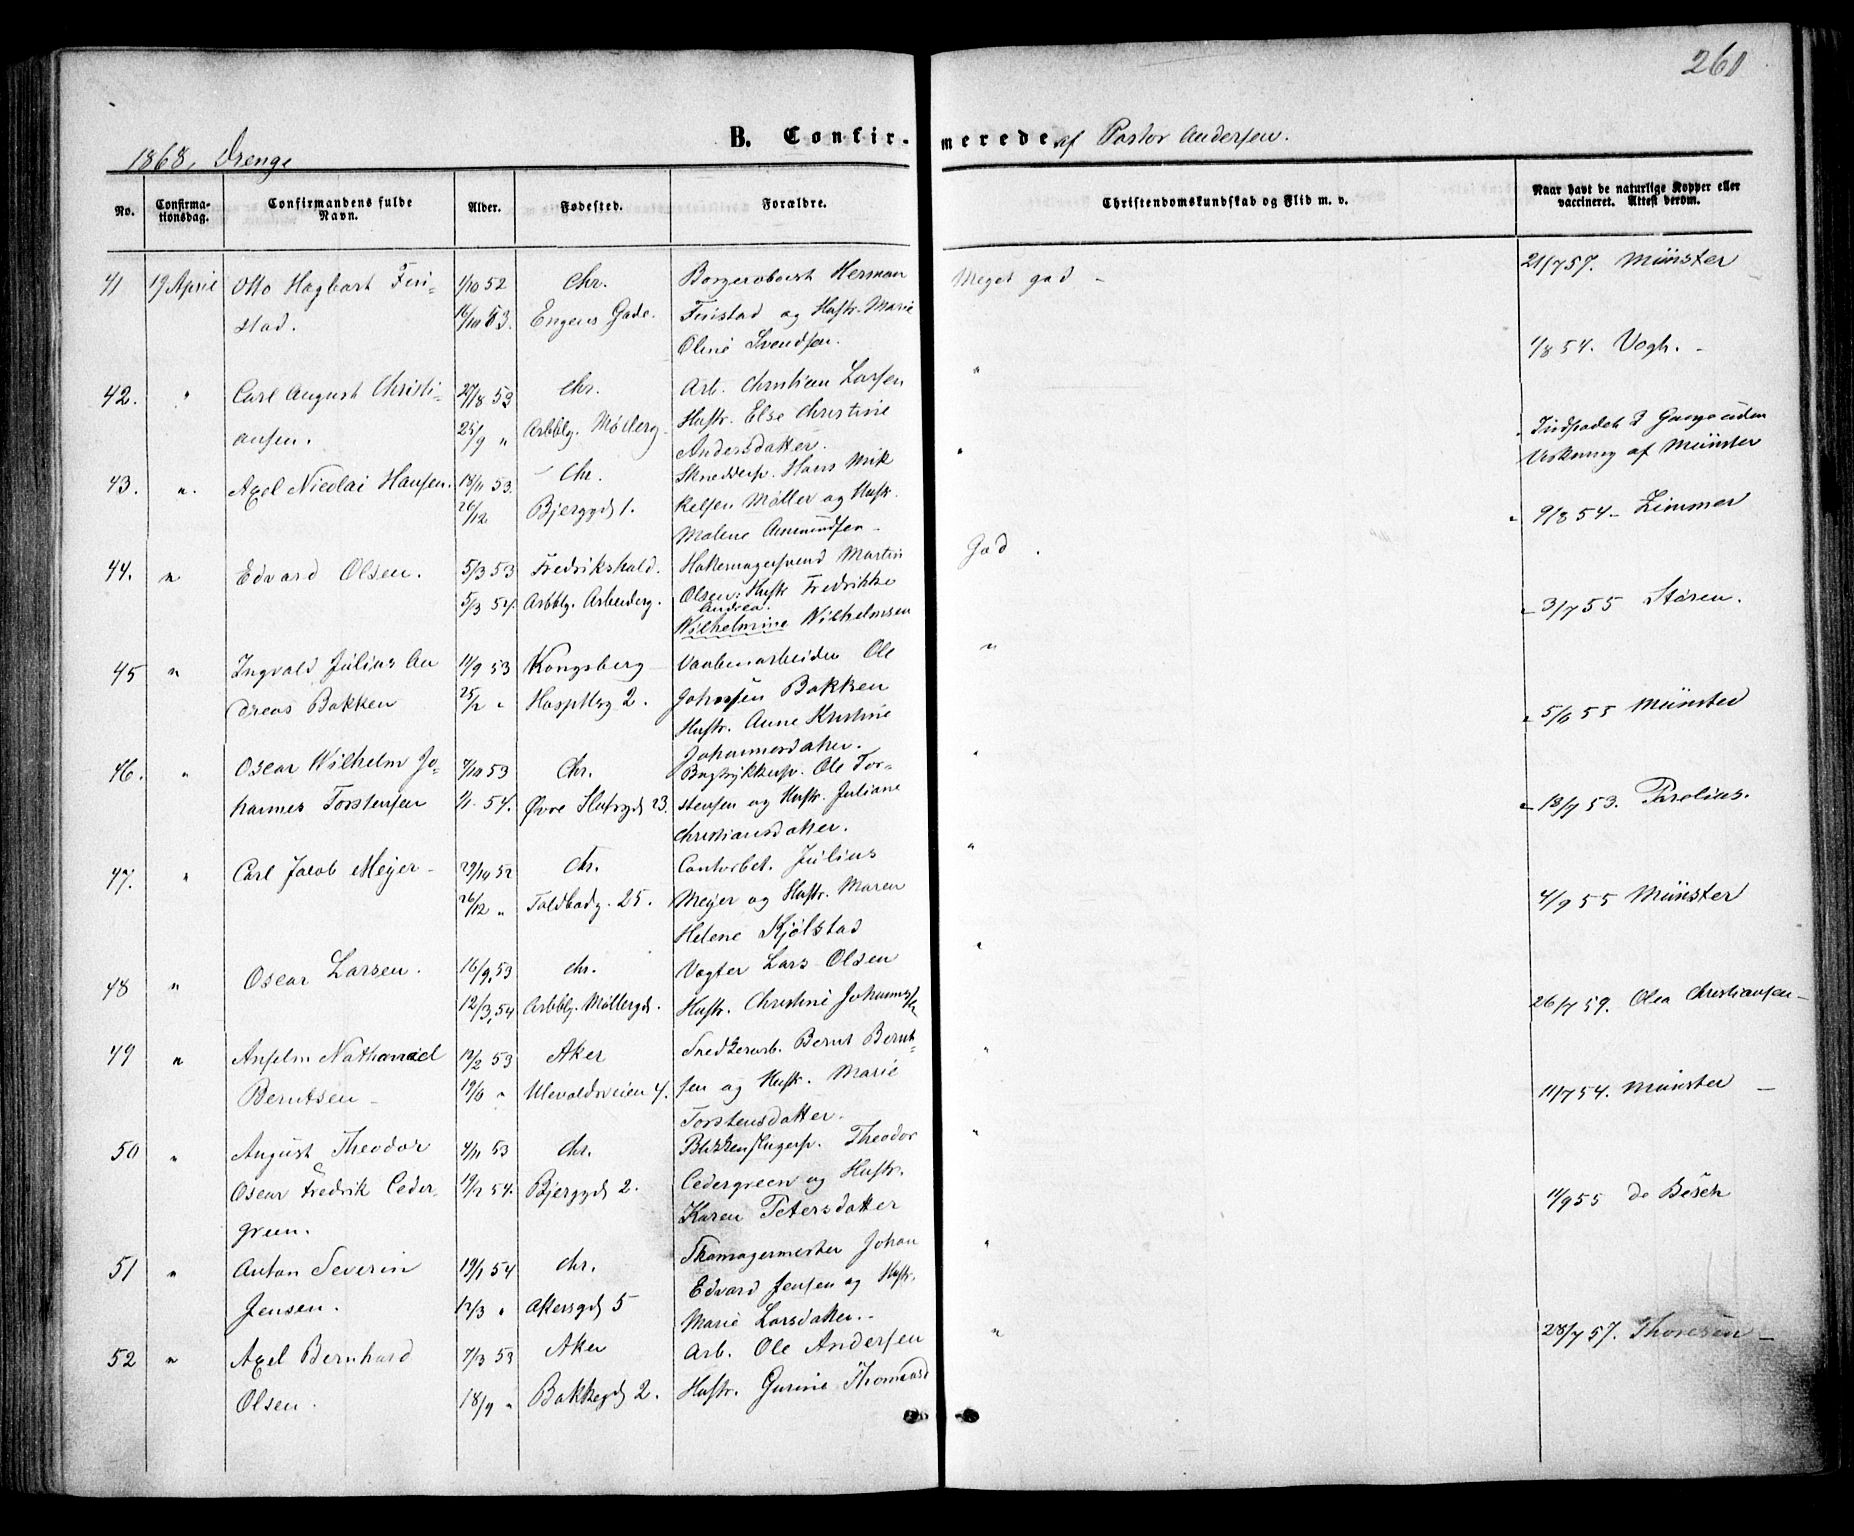 260
B. Confir-merede af Pastor Andersen.
1868, Drenge
No.
Confirma-
tionsdag.
Confirmandens fulde
Navn.
Alder.
Fødested.
Forældre.
Christendomskundskab og Flid m. v.
Naar havt de naturlige Kopper eller
vaccineret. Attest derom.
41 19 April Otto Hagbart Fin- 1/10 52 Chr. Herman Meget god - 21/7 57. Münster
stad. 16/10 53. Engens Gade. Finstad og Hustr. Marie
Oline Svendsen.
42. " Carl August Christi- 27/8 53 Chr. Arb. Christian Larsen " 1/8 54. Vogh. -
ansen. 25/9 " Arbblg. Møllerg. Hustr. Else Christine
Andersdatter.
43. " Axel Nicolai Hansen. 18/11 53. Chr. Skreddersv. Hans Mik " Indpodet 3 Gange uden
26/12 Bjerggd 1. kelsen Møller og Hustr. Virkning af Münster
Malene Amundsen -
44. " Edvard Olsen. 5/3 53 Fredrikshald. Martin God. " 9/8 54 - Zimmer
5/3 54. Arbblg. Arbeiderg. Olsen. Hustr Fredrikke
Andrea.
Wilhelmine Wilhelmsen
45 " Ingvald Julius An 11/9 53 Kongsberg Vaabenarbeider Ole " 3/7 55 Støren.
dreas Bakken 25/2 " Hospitlsg 2. Johnsen Bakken
Hustr. Anne Kristine
Johannesdatter.
46. " Oscar Wilhelm Jo- 7/10 53 Chr. Bogtrykkersv. Ole Tor- " 5/6 55 Münster
hannes Torstensen 1/1 54. Øvre 23. stensen og Hustr. Juliane
Christiansdatter.
47. " Carl Jacob Meyer - 29/10 52 Chr. Contorbet. Julius " 13/7 53.
26/12 " Toldbodg. 25. Meyer og Hustr. Maren
Helene Kjølstad
48 " Oscar Larsen. 16/9 53 Chr. Vogter Lars Olsen " 4/9 55 Münster
12/3 54 Arbblg. Møllergd. Hustr. Christine
49 " Anselm Nathanael 12/2 53 Aker Bernt Bernt- " 26/7 59. Olea Christiansen -
Berntsen - 19/6 " Ulevoldsveien 4. sen og Hustr. Marie
Torstensdatter.
50 " August Theodor 4/11 53 Chr. Blikkenslagersv. Theodor " 11/7 54. Münster -
Oscar Fredrik Ceder- 19/2 54. Bjerggd 2. Cedergreen og Hustr.
green. Karen Petersdatter
51 " Anton Severin 19/1 54 Chr. Skomagermester Johan " 11/9 55 de Besch
Jensen. 12/3 " Akersgd 5 Edvard Jensen og Hustr.
Marie Larsdatter.
52 " Axel Bernhard 7/3 53 Aker Arb. Ole Andersen " 28/7 57. Thoresen -
Olsen. 18/9 " Bakkegd 2. Hustr. Gurine